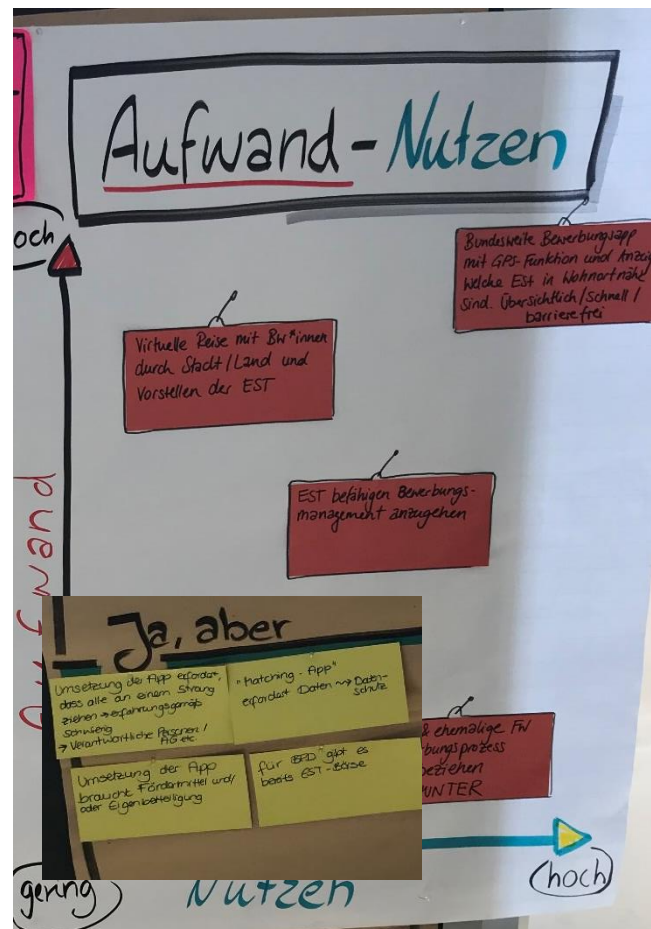 Aufwand - Nutzen
och
Bundesweite Bewerbungsapp
mit GPS-Funktion und Anzeig
welche ESt in Wohnortnähe
sind. Übersichtlich/Schnell/
barrierefrei
Virtuelle Reise mit BW*innen
durch Stadt/Land und
Vorstellen der EST
EST befähigen Bewerbungs-
management anzugehen
Aufwand
Ja, aber
Umsetzung der App erfordert,
dass alle an einem Strang
ziehen → erfahrungsgemäß
schwierig
→ Verantwortliche Personen /
AG etc.
"Matching-App"
erfordert Daten ⇝ Daten-
schutz
Umsetzung der App
braucht Fördermittel und/
oder Eigenbeteiligung
für "BFD" gibt es
bereits EST-Börse
& ehemalige FW
rbungsprozess
beziehen
UNTER
gering
Nutzen
hoch